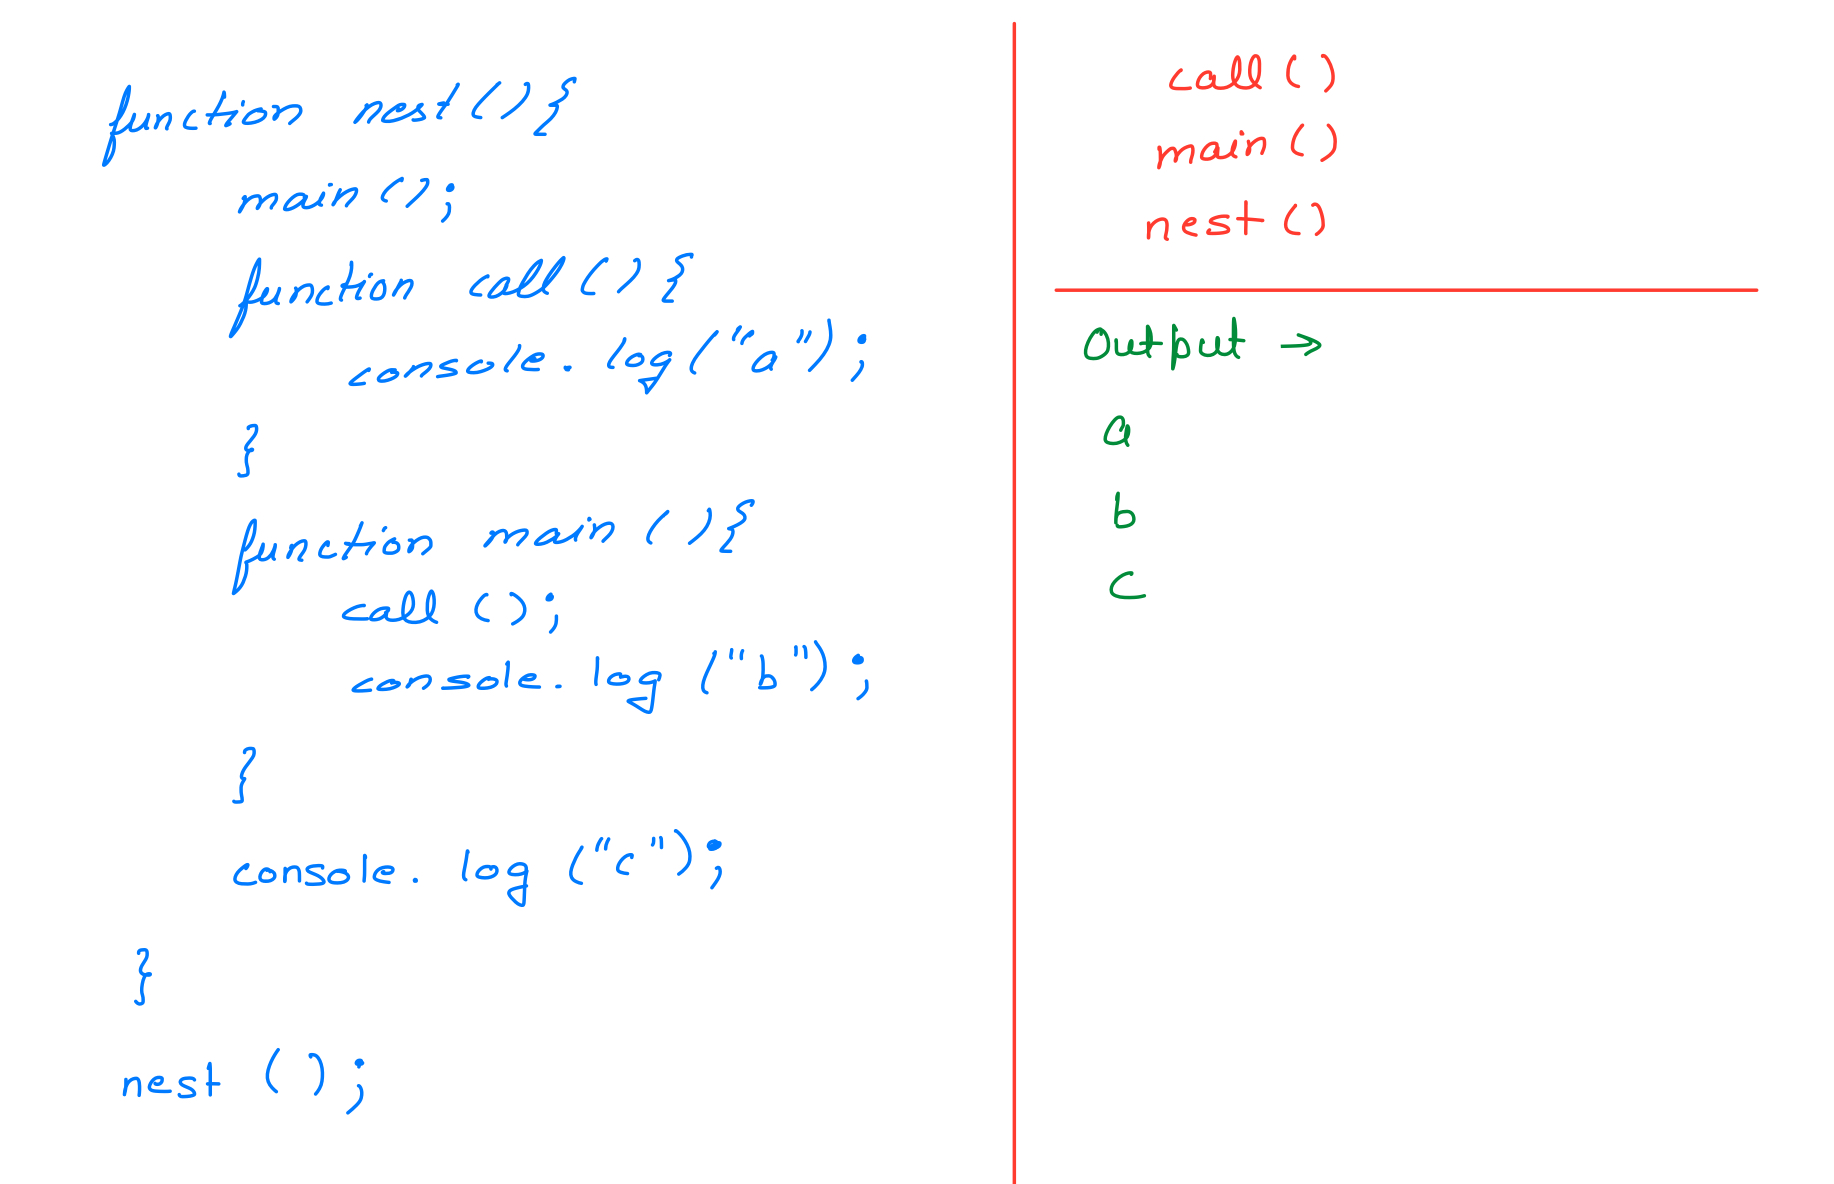 function nest(){
main();
function call(){
console.log("a");
}
function main(){
call();
console.log("b");
}
console.log("c");
}
nest();
call()
main()
nest()
Output →
a
b
c